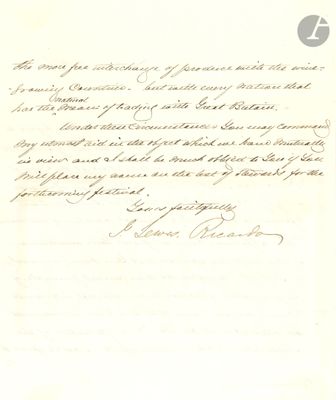 the more free interchange of produce with the wine-
growing Countries – but with every nation that
has the natural means of trading with Great Britain.
Under these Circumstances You may command
my utmost aid in the object which we have mutually
in view and I shall be much obliged to You if You
will place my name on the list of Stewards for the
forthcoming festival.
Yours faithfully
J Lewis Ricardo